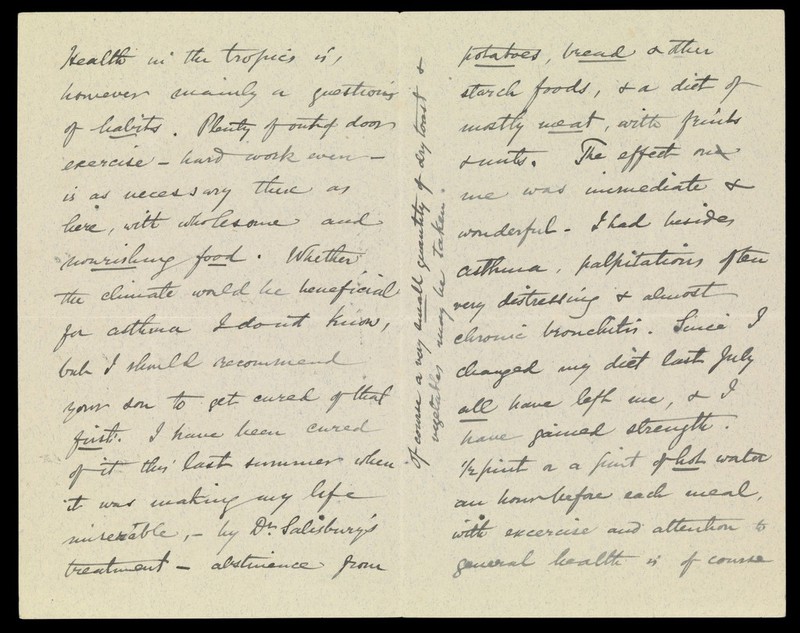 Health in the tropics is,
however mainly a question
of habits. Plenty of out of door
exercise – hard work even –
is as necessary there as
here, with wholesome and
nourishing food. Whether
the climate would be beneficial
for asthma I do not know,
but I should recommend
your son to get cured of that
first. I have been cured
of it this last summer when
it was making my life
miserable, – by Dr Salisbury's
treatment – abstinence from
potatoes, bread & other
starch foods, & a diet of
mostly meat, with fruits
& nuts. The effect on
me was immediate &
wonderful. I had besides
asthma, palpitations often
very distressing & almost
chronic bronchitis. Since I
changed my diet last July
all have left me, & I
have gained strength.
½ pint or a pint of hot water
an hour before each meal,
with excercise and attention to
general health is of course
Of course a very small quantity of dry toast &
vegetables may be taken.